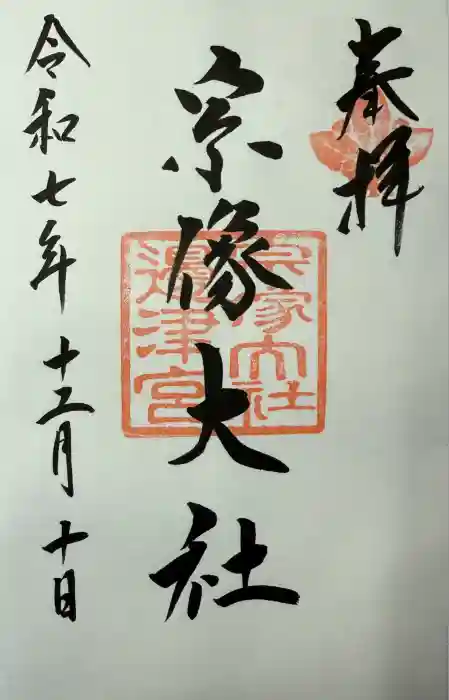 奉拝
宗像大社
宗像大社
邊津宮
令和七年十二月十日